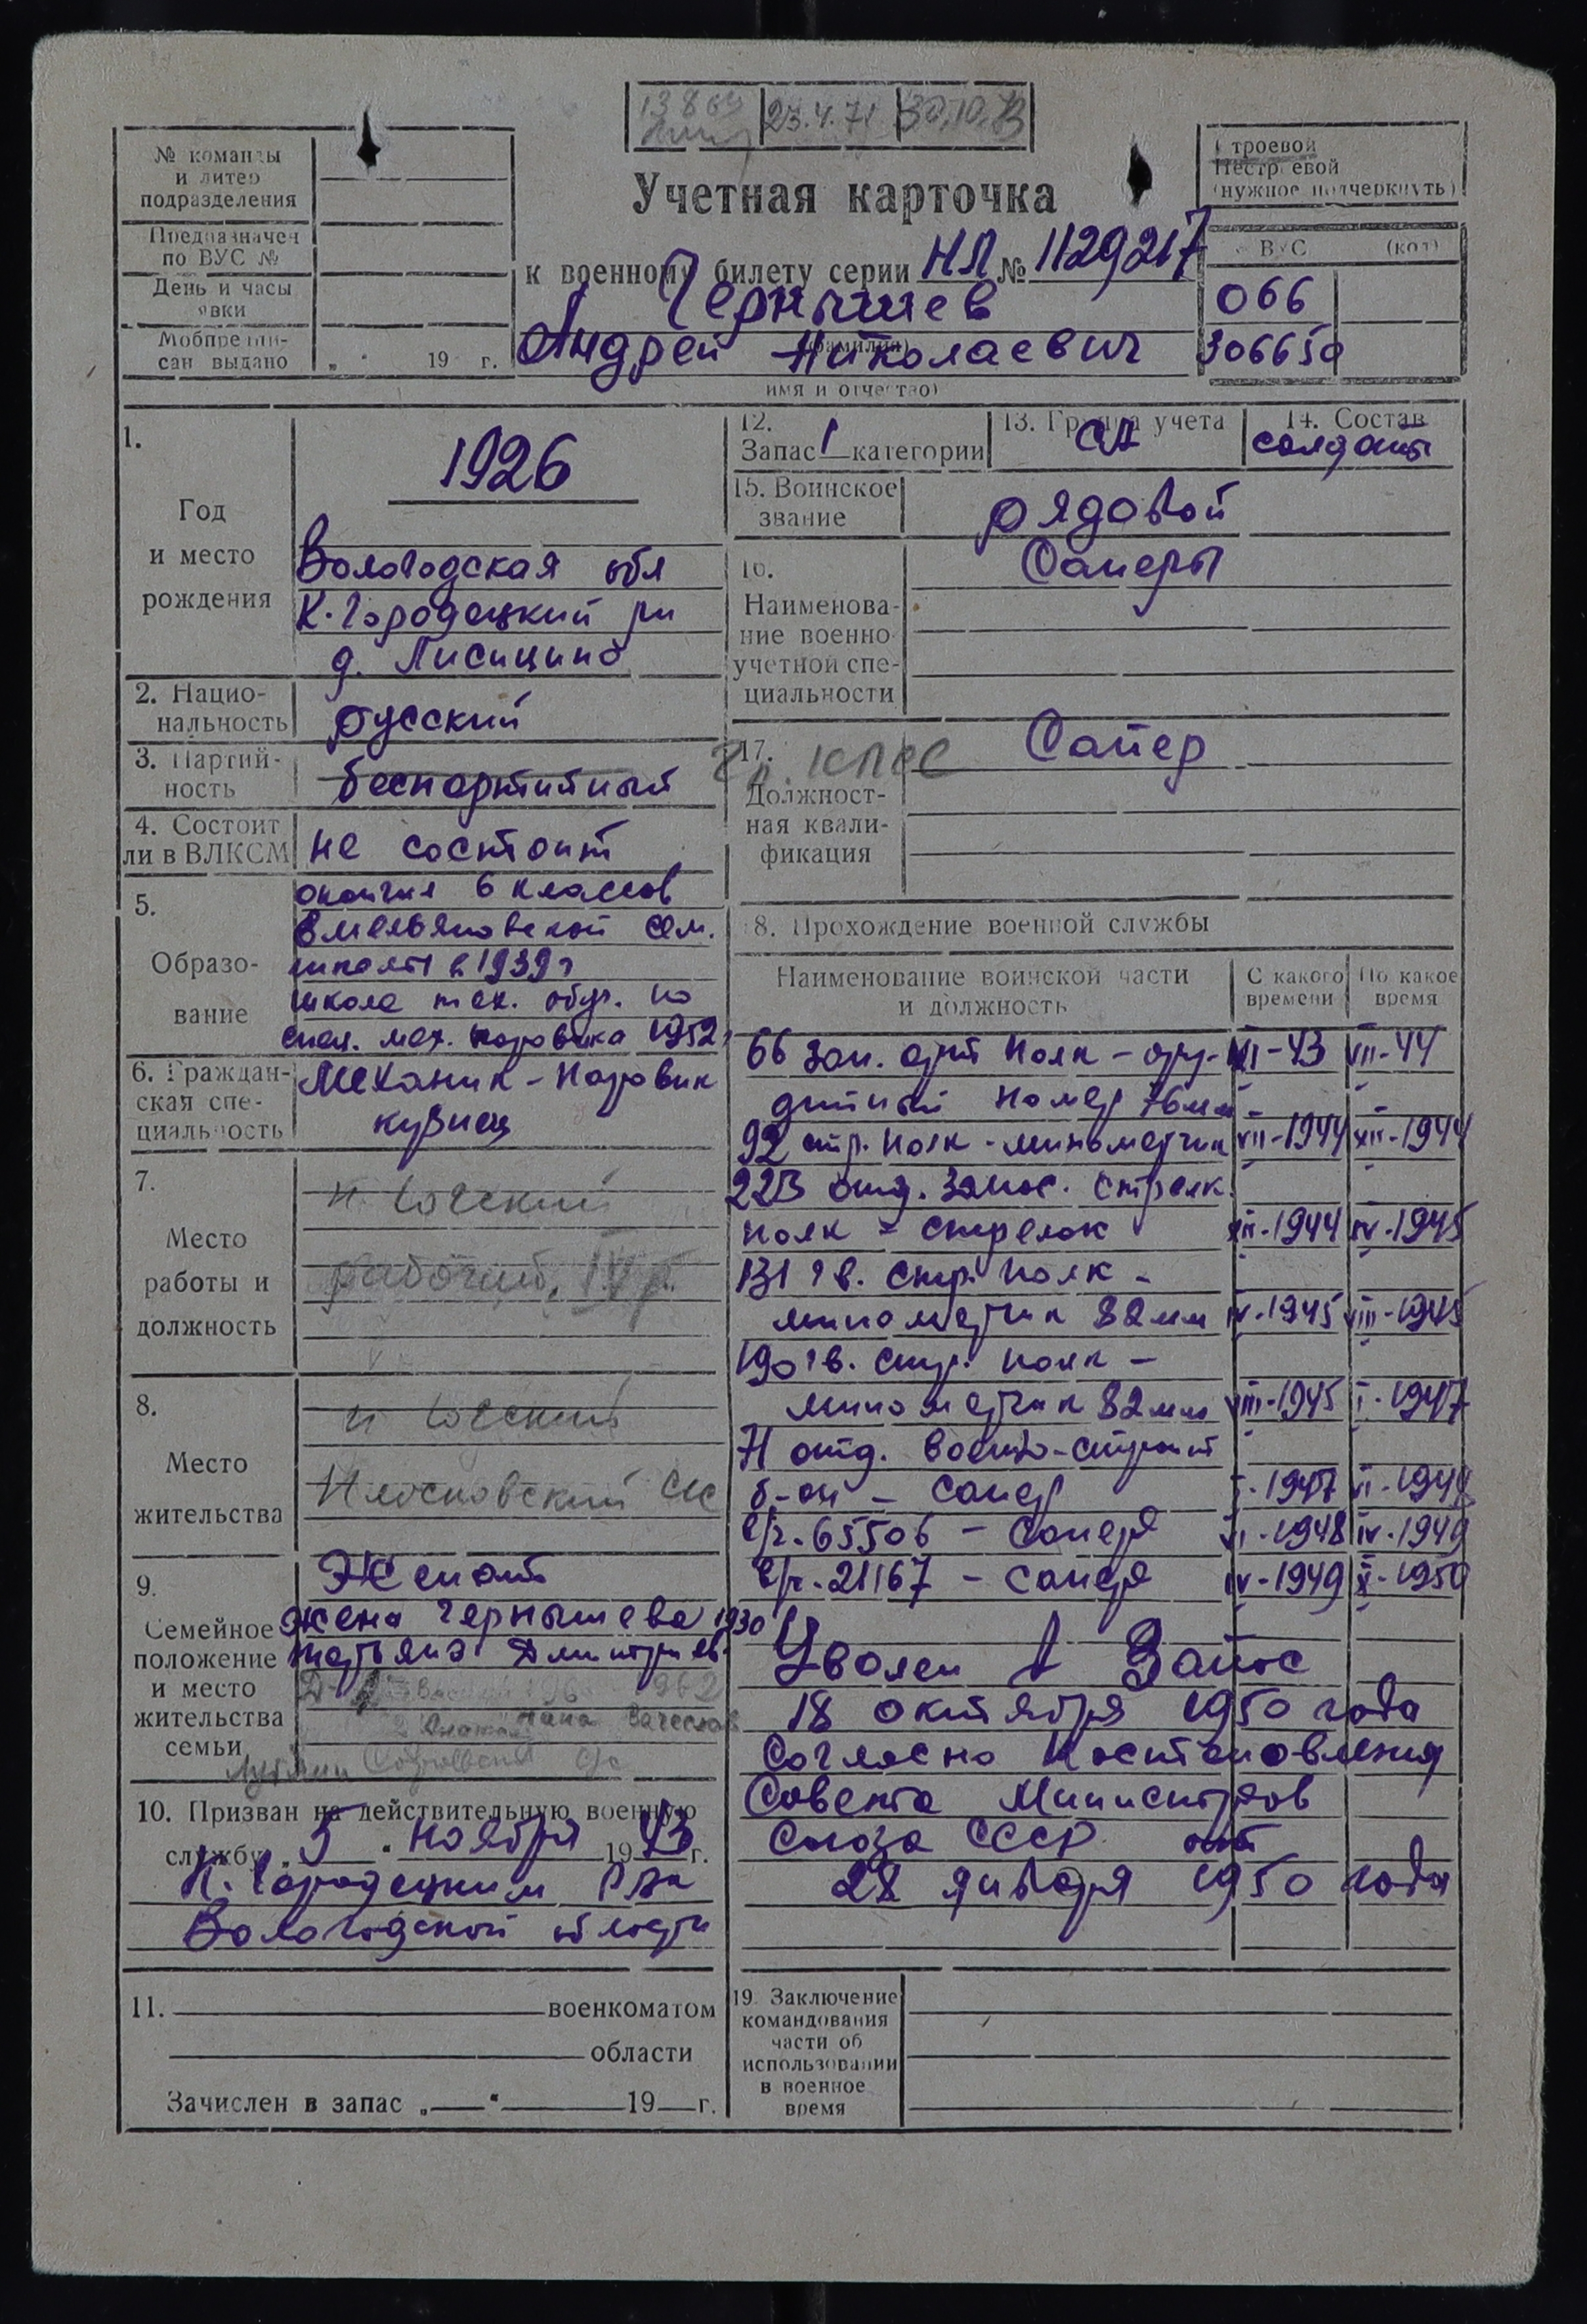 23.4.71 30.10.73
№ команды
и литер
подразделения
Предназначен
по ВУС №
День и часы
явки
Мобпредпи-
сан выдано
19 г.
Учетная карточка
к военному билету серии НЛ № 1129217
Чернышев
(фамилия)
Андрей Николаевич
имя и отчество)
Строевой
Нестроевой
(нужное подчеркнуть)
ВУС (код)
066
306650
1.
Год
и место
рождения
1926
Вологодская обл
К-Городецкий рн
д. Лисицино
2. Нацио-
нальность
русский
3. Партий-
ность
беспартийный
4. Состоит
ли в ВЛКСМ
не состоит
5.
Образо-
вание
окончил 6 классов
Емельяновской сем.
школы в 1939 г
школа тех. обуч. по
спец. мех. паровика 1952
6. Граждан-
ская спе-
циальность
Механик-паровик
кузнец
7.
Место
работы и
должность
рабочий, IV р.
8.
Место
жительства
9.
Семейное
положение
и место
жительства
семьи
Женат
жена Чернышева 1930
Дмитриев.
10. Призван на действительную военную
службу „5“ ноября 1943 г.
К. Городецким РВК
Вологодской области
11. военкоматом
области
Зачислен в запас „ “ 19 г.
12.
Запас 1 категории
13. Группа учета
СА
14. Состав
солдаты
15. Воинское
звание
рядовой
16.
Наименова-
ние военно
учетной спе-
циальности
Саперы
17.
Должност-
ная квали-
фикация
Сапер
18. Прохождение военной службы
Наименование воинской части
и должность
С какого
времени
По какое
время
66 зап. арт полк - ору- XI-43 VII-44
дийный номер 76мм
92 стр. полк - минометчик VII-1944 XII-1944
223 отд. запас. стрелк.
полк - стрелок XII-1944 IV-1945
131 гв. стр. полк -
минометчик 82 мм IV-1945 VIII-1945
190 гв. стр. полк -
минометчик 82 мм VIII-1945 I-1947
71 отд. военно-строит
б-он - сапер I-1947 VI-1948
в/ч-65506 - сапер VI-1948 IV-1949
в/ч-21167 - сапер IV-1949 X-1950
Уволен в запас
18 октября 1950 года
Согласно Постановления
Совета Министров
Союза ССР от
28 января 1950 года
19. Заключение
командования
части об
использовании
в военное
время